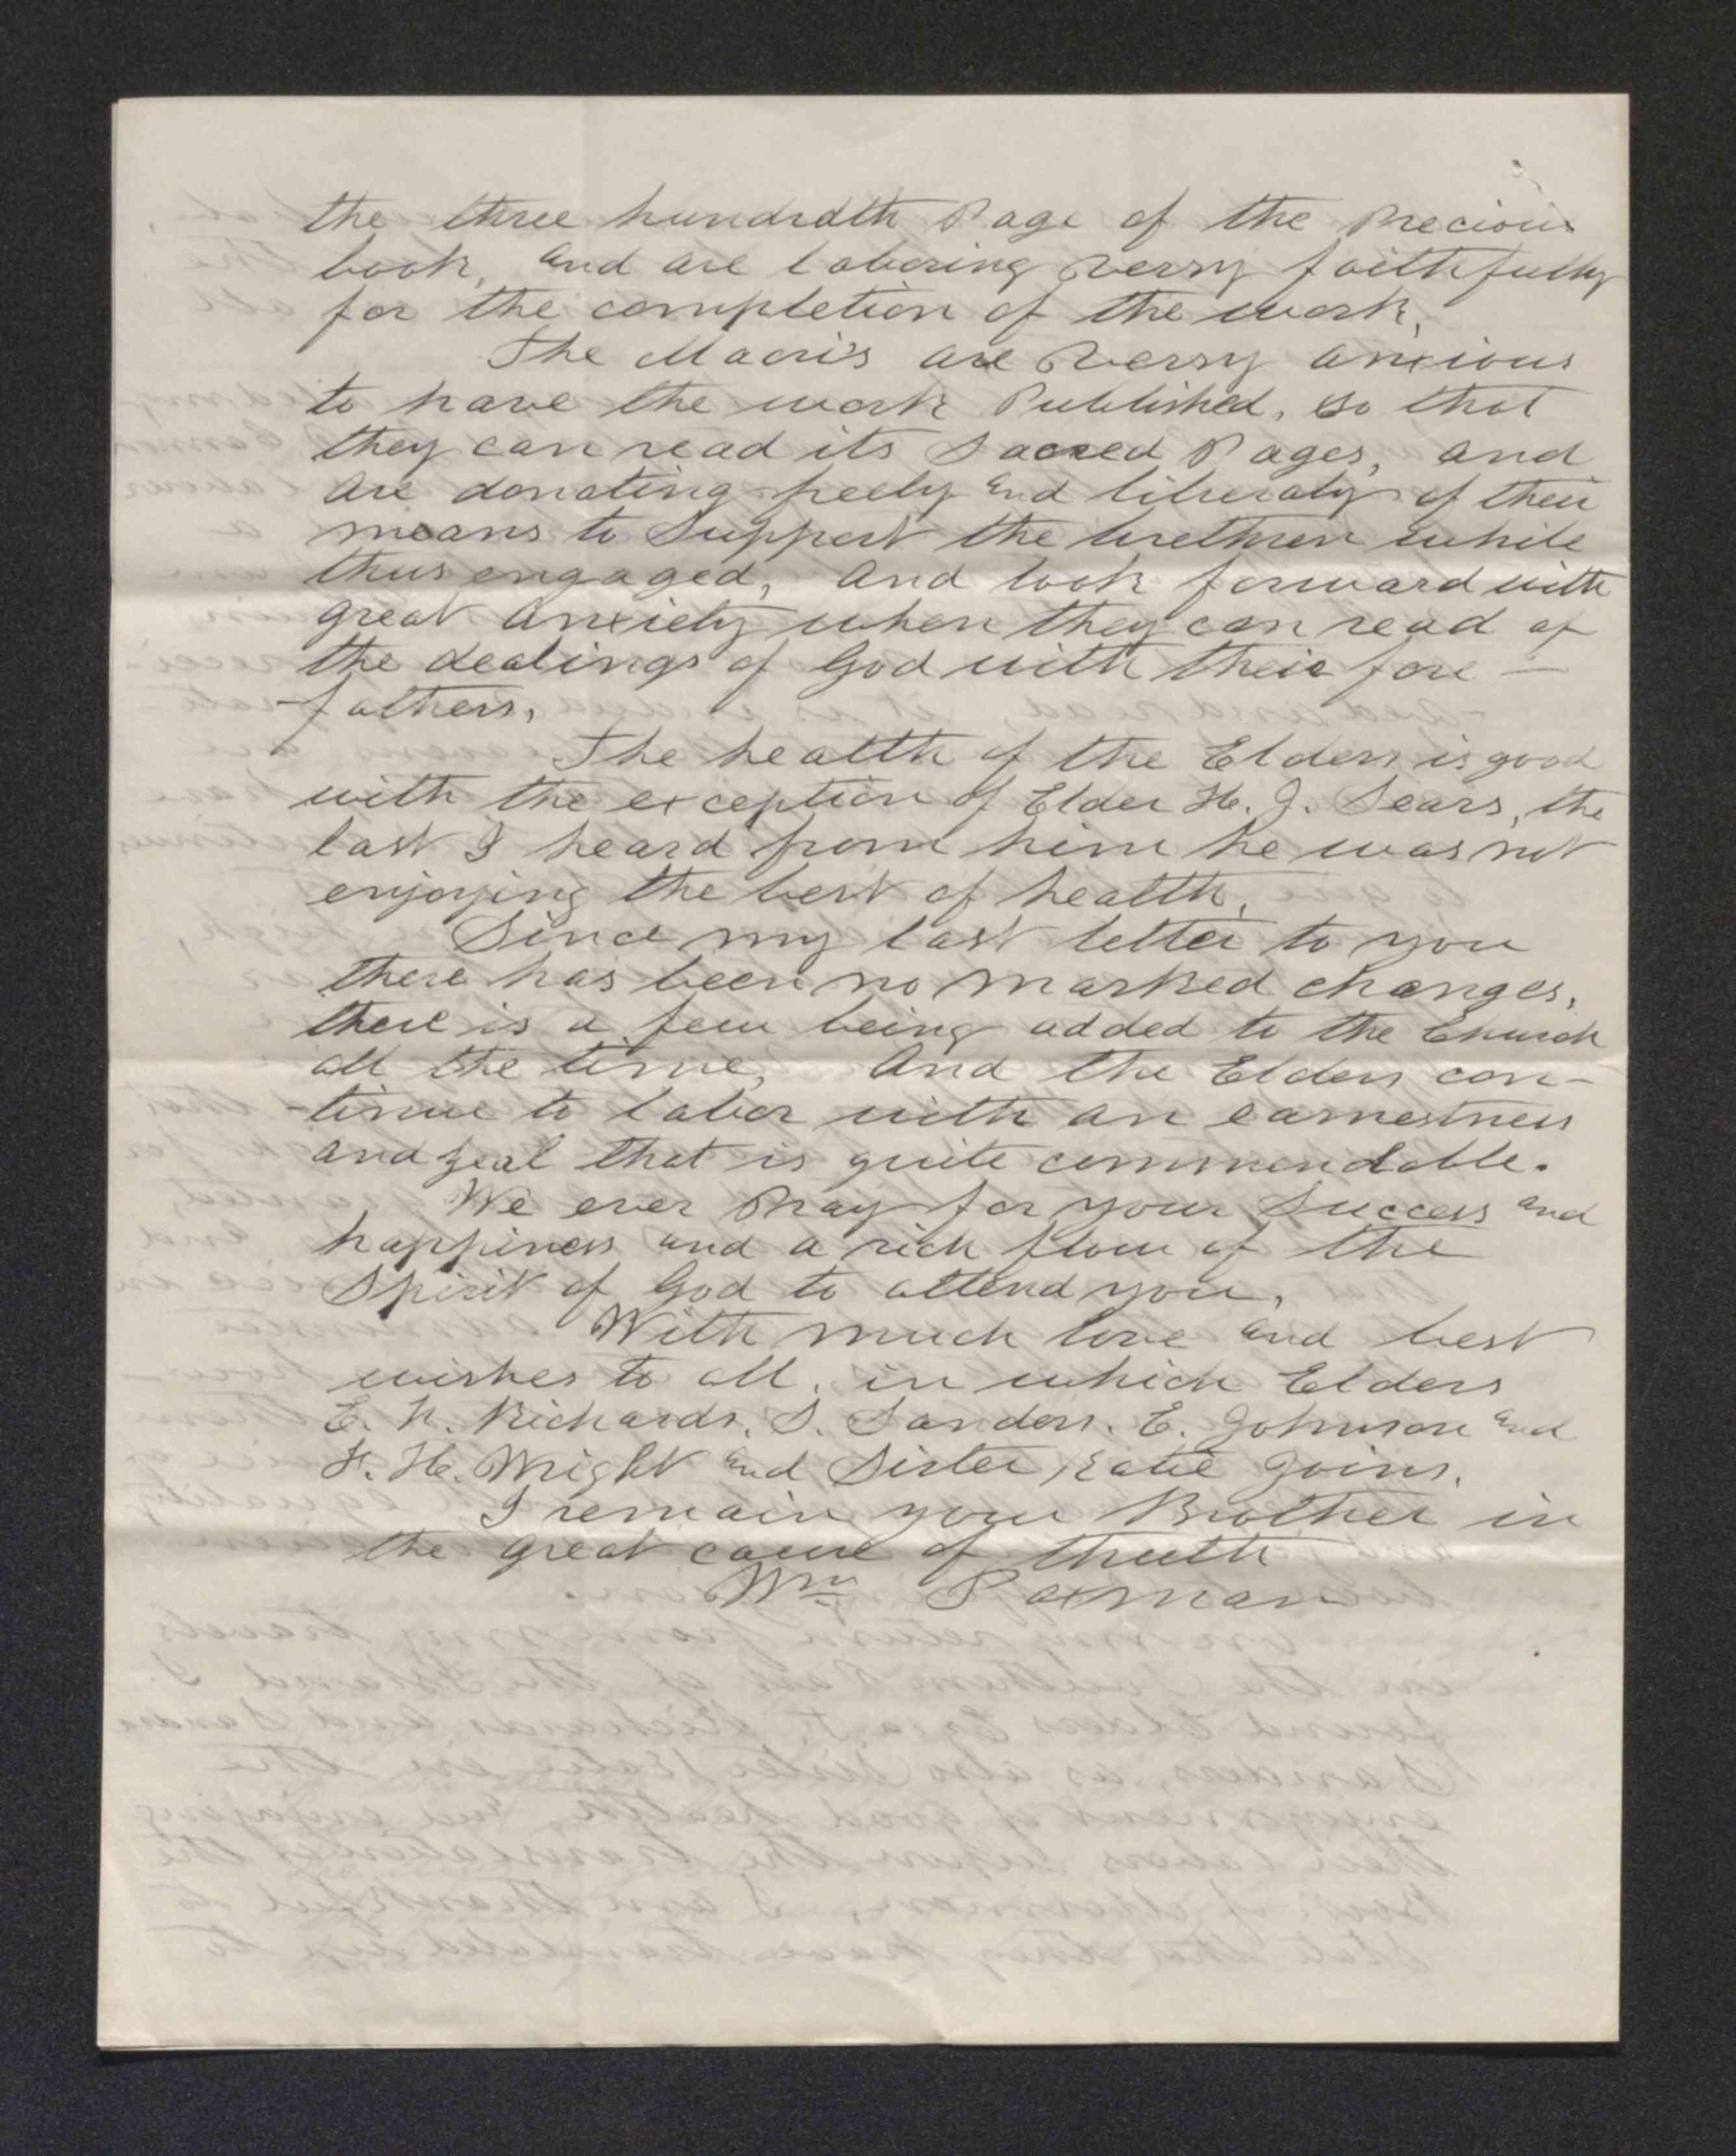 the three hundredth Page of the Precious
book, and are laboring verry faithfully
for the completion of the work,
The Maori's are verry anxious
to have the work Published, so that
they can read its Sacred Pages, and
are donating freely and liberaly of their
means to Support the brethren while
thus engaged, and look forward with
great anxiety when they can read of
the dealings of God with their fore-
-fathers,
The health of the Elders is good
with the exception of Elder H. J. Sears, the
last I heard from him he was not
enjoying the best of health,
Since my last letter to you
there has been no marked changes,
there is a few being added to the Church
all the time, And the Elders con-
-tinue to labor with an earnestness
and zeal that is quite commendable.
We ever Pray for your Success and
happiness and a rich flow of the
Spirit of God to attend you,
With much love and best
wishes to all, in which Elders
E. F. Richards, S. Sanders, E. Johnson and
F. H. Wright and Sister Katie joins,
I remain your Brother in
the great cause of thruth
Wm Paxman